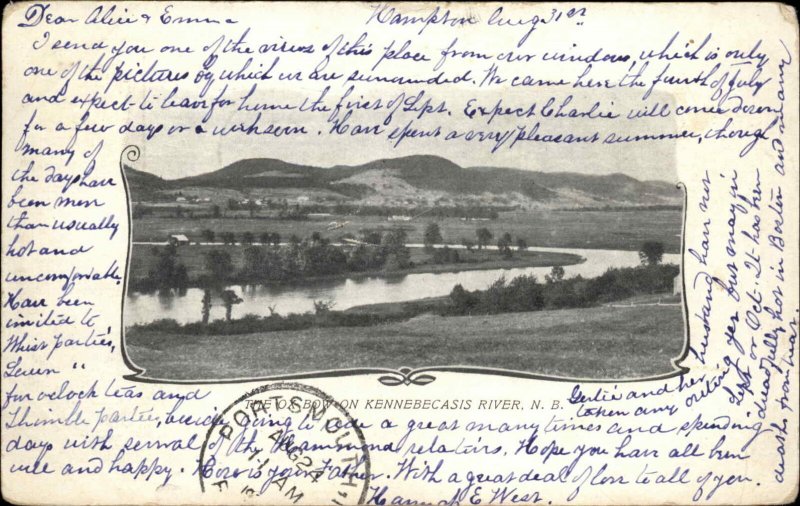 Dear Alice & Emma Hampton Aug 31st
I send you one of the views of this place from our windows, which is only
one of the pictures by which we are surrounded. We came here the fourth of July
and expect to leave for home the first of Sept. Expect Charlie will come down
for a few days or a week soon. Have spent a very pleasant summer, though
many of
the days have
been more
than usually
hot and
uncomfortable.
Have been
invited to
Whist parties,
Seven "
five o'clock teas and
Thimble parties, beside going to ride a great many times and spending
days with several of the Hammond relatives. Hope you have all been
well and happy. How is your Father. With a great deal of love to all of you.
Hannah E West.
Gertie and her husband have not
taken any outing yet but may in
Sept or Oct. It has been
dreadfully hot in Boston and many
deaths from
THE OX BOW ON KENNEBECASIS RIVER, N. B.
PORTSMOUTH
AUG 24
AM